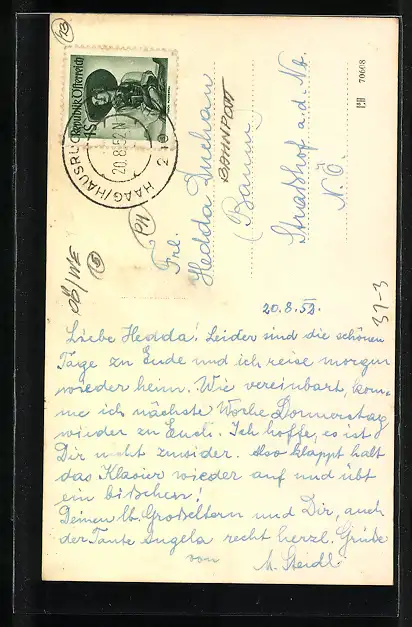 Republik Österreich
1S
HAAG/HAUSRUCK
20.8.52
Frl.
Hedda Duchan
BAHNPOST
(Baum)
Straßhof a.d. Nb.
N.Ö.
70608
13
PM
OÖ/WE
15
37-3
20.8.52.
Liebe Hedda! Leider sind die schönen
Tage zu Ende und ich reise morgen
wieder heim. Wie vereinbart, kom-
me ich nächste Woche Donnerstag
wieder zu Euch. Ich hoffe, es ist
Dir nicht zuwider. Also klappt halt
das Klavier wieder auf und übt
ein bißchen!
Deinen lb. Großeltern und Dir, auch
der Tante Angela recht herzl. Grüße
von M. Steidl